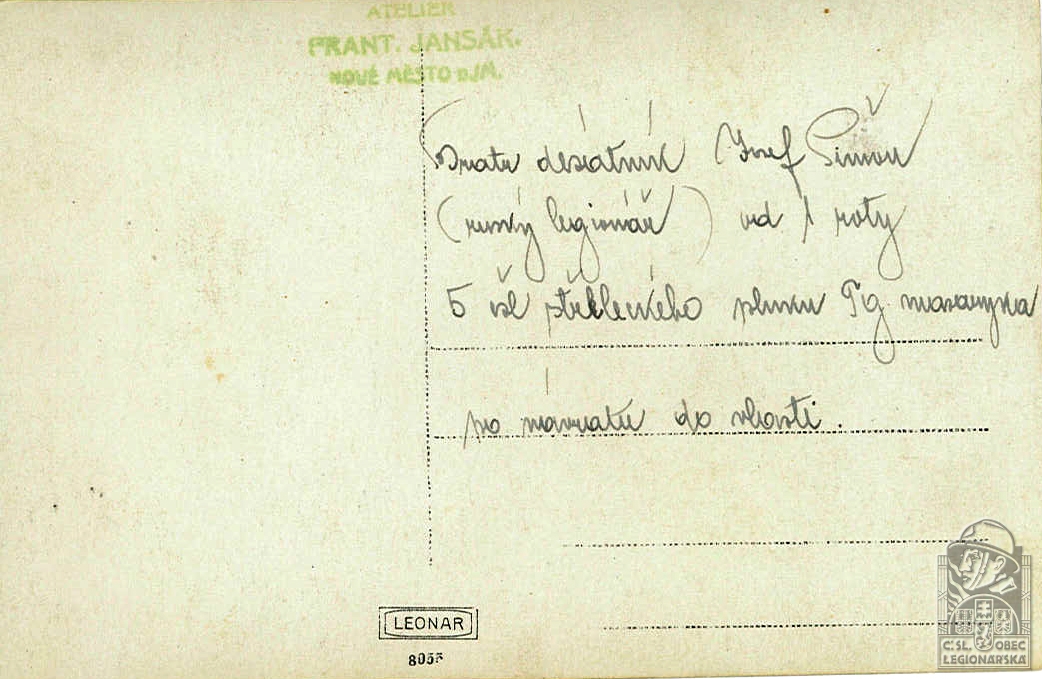 ATELIER
FRANT. JANSÁK.
NOVÉ MĚSTO N/M.
Bratr desátník Josef Šimon
(ruský legionář) od 1 roty
5 čsl střeleckého pluku Tg masaryka
po návratu do vlasti.
LEONAR
Č.SL. OBEC
LEGIONÁŘSKÁ